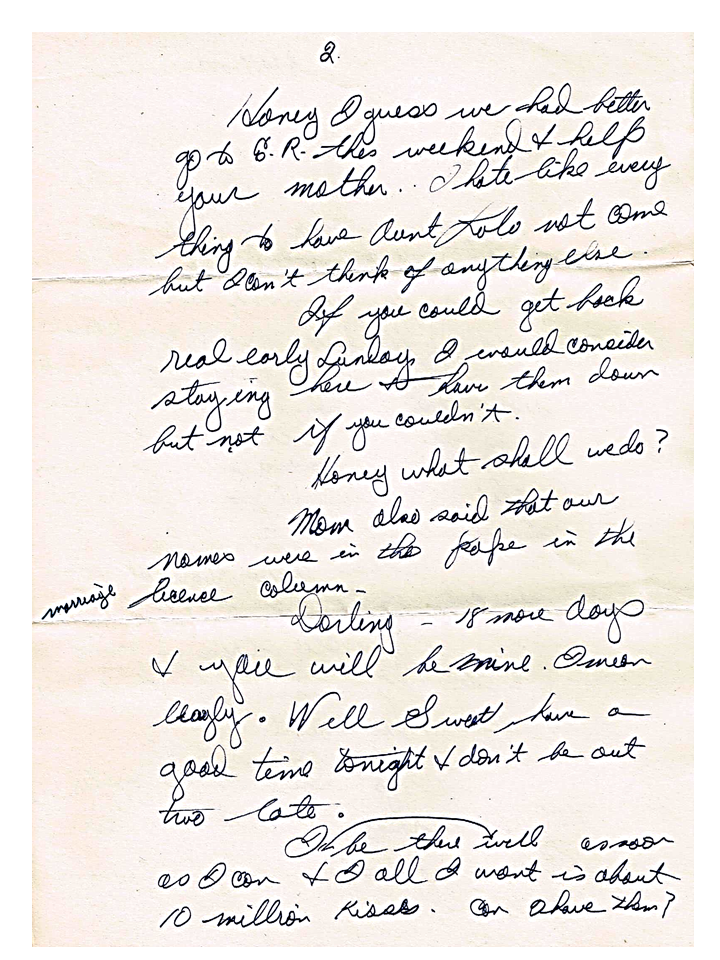 2.
Honey I guess we had better
go to G. R. this weekend & help
your mother.. I hate like every
thing to have Aunt Lolo not come
but I can't think of anything else.
If you could get back
real early Sunday, I would consider
staying here & have them down
but not if you couldn't.
Honey what shall we do?
Mom also said that our
names were in the pape in the
marriage licence column -
Darling - 18 more days
& you will be mine. I mean
leagly. Well Sweet have a
good time tonight & don't be out
two late.
I be there will as soon
as I can & I all I want is about
10 million kisses. Can I have them?